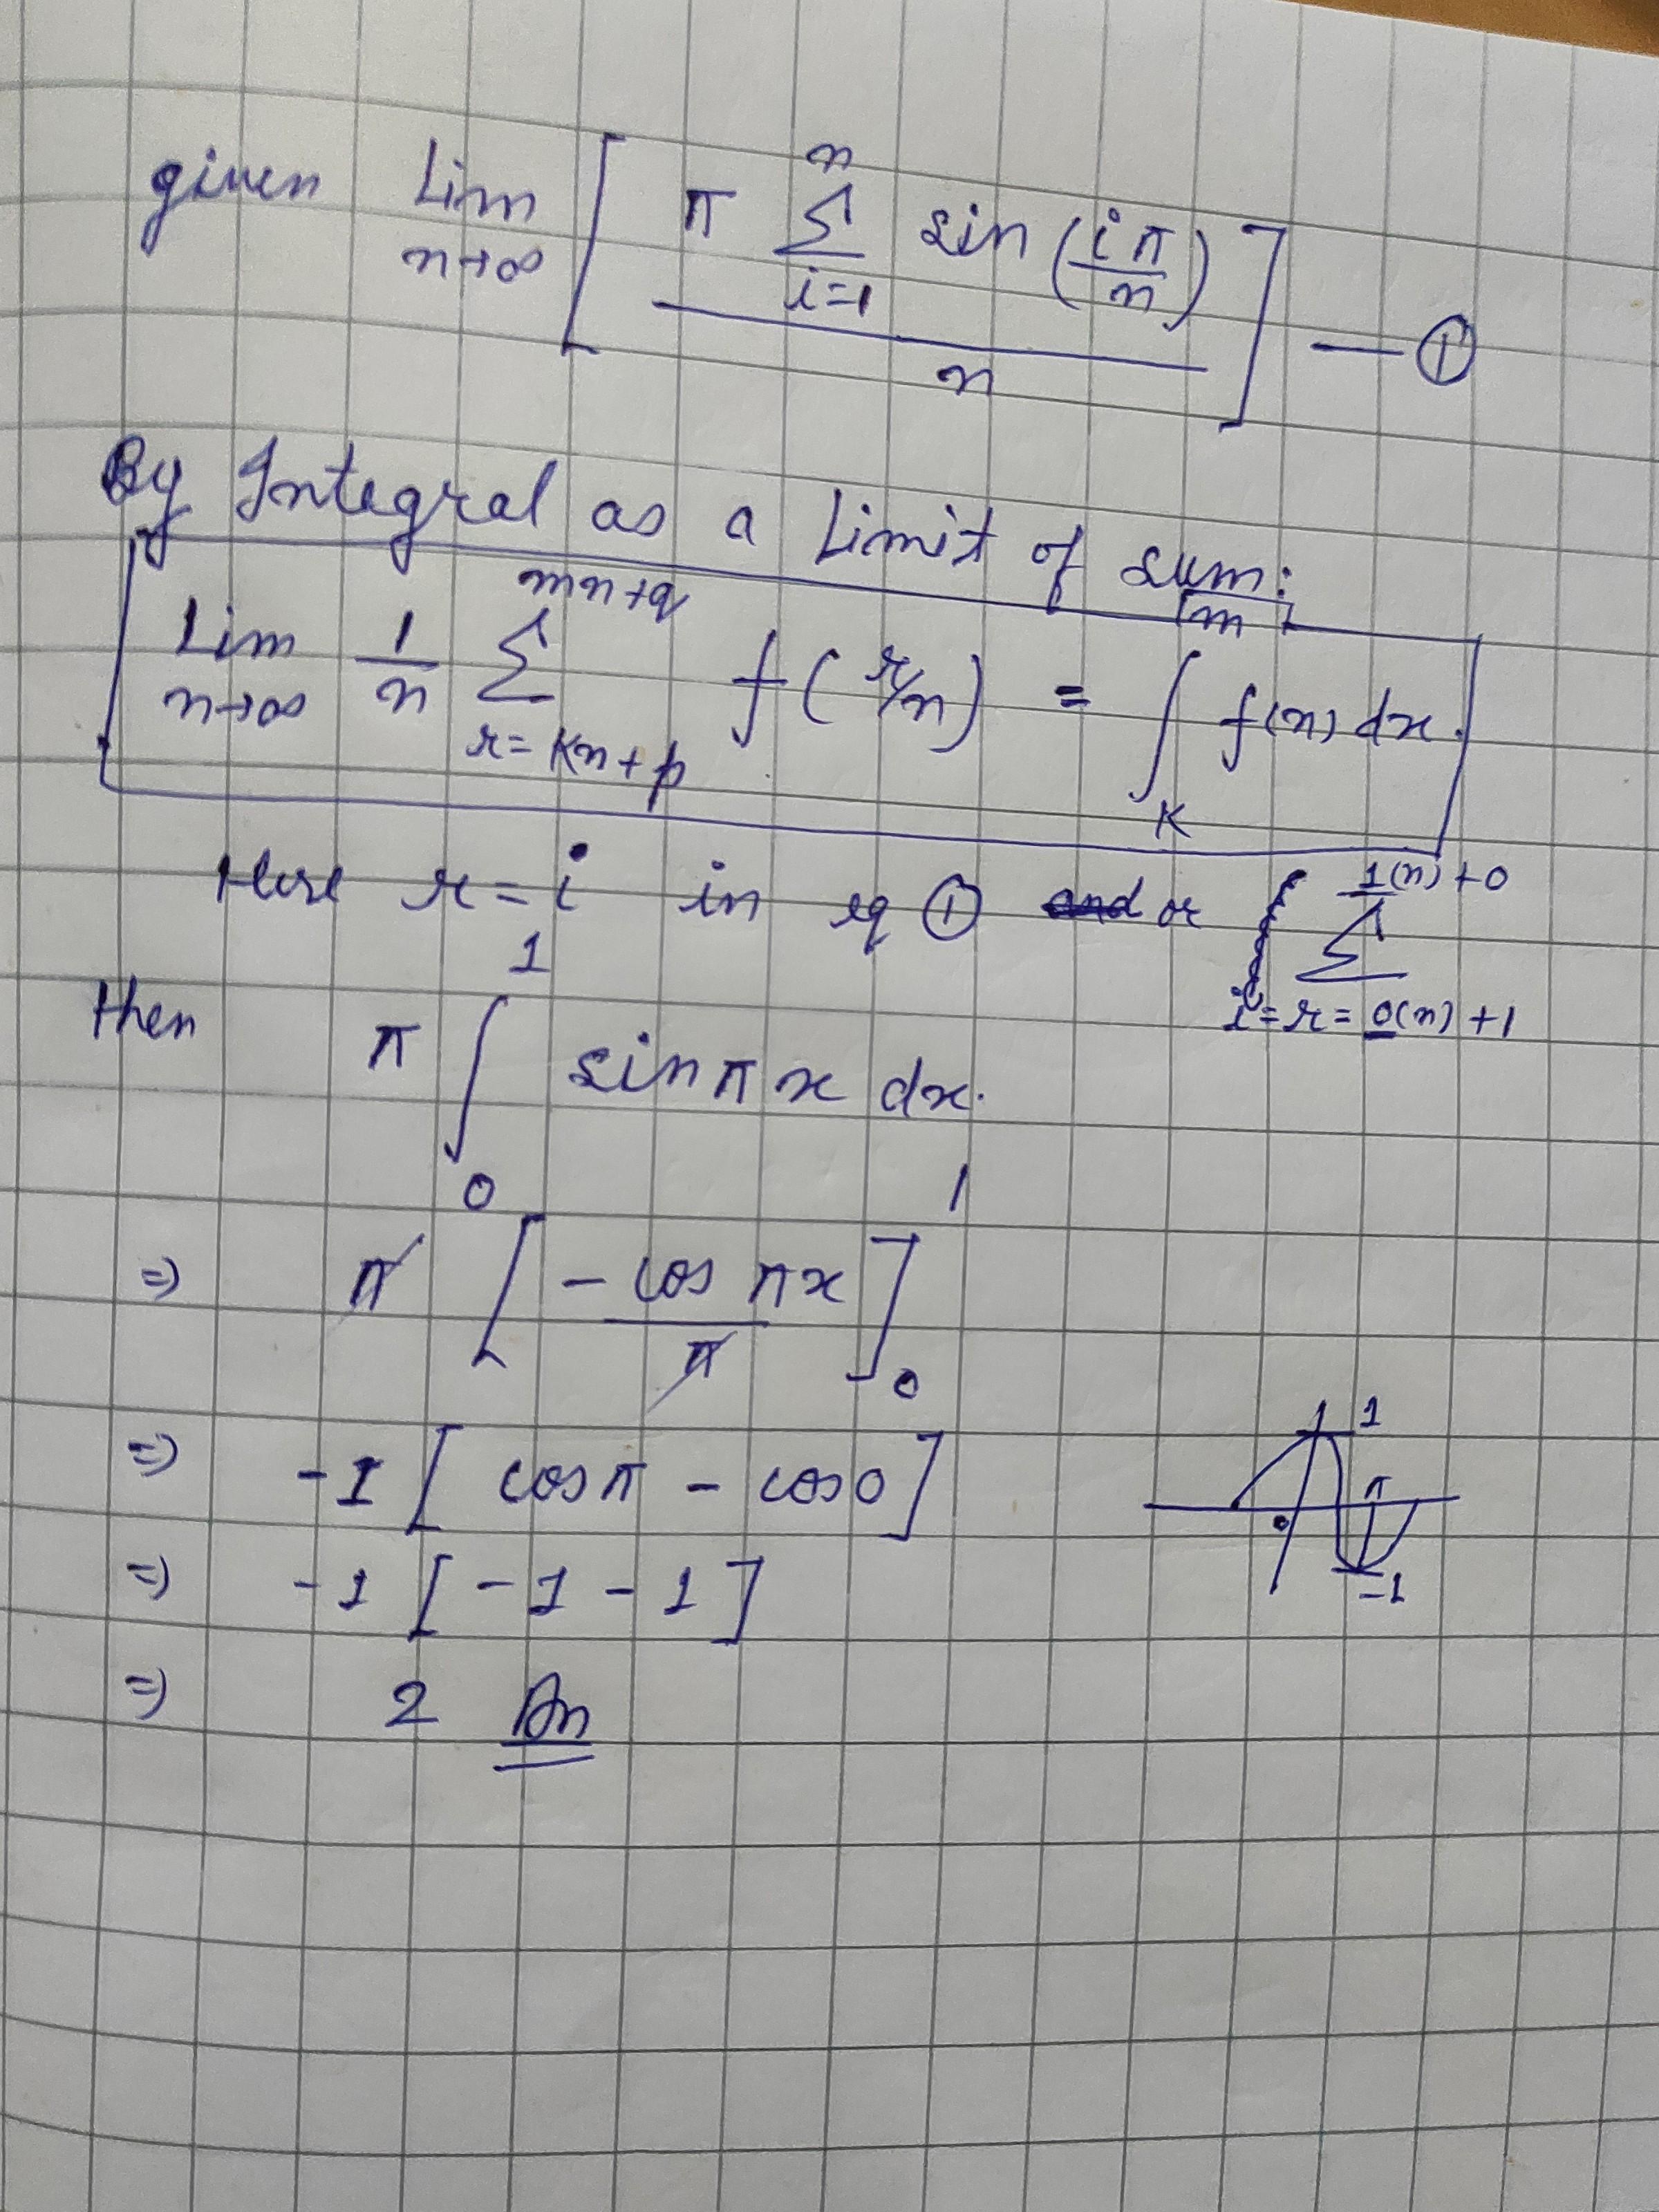 given Lim n→∞ [ π Σ i=1 n sin (iπ/n) / n ] — ①
By Integral as a Limit of sum:
Lim n→∞ 1/n Σ r=Kn+p mn+q f(r/n) = ∫ K m f(n) dx.
Here r = i in eq ① or Σ i=r=0(n)+1 1(n)+0
then π ∫ 0 1 sin π x dx.
⇒ π [ - cos πx / π ] 0 1
⇒ -1 [ cos π - cos 0 ]
1
0 π
-1
⇒ -1 [ -1 - 1 ]
⇒ 2 An